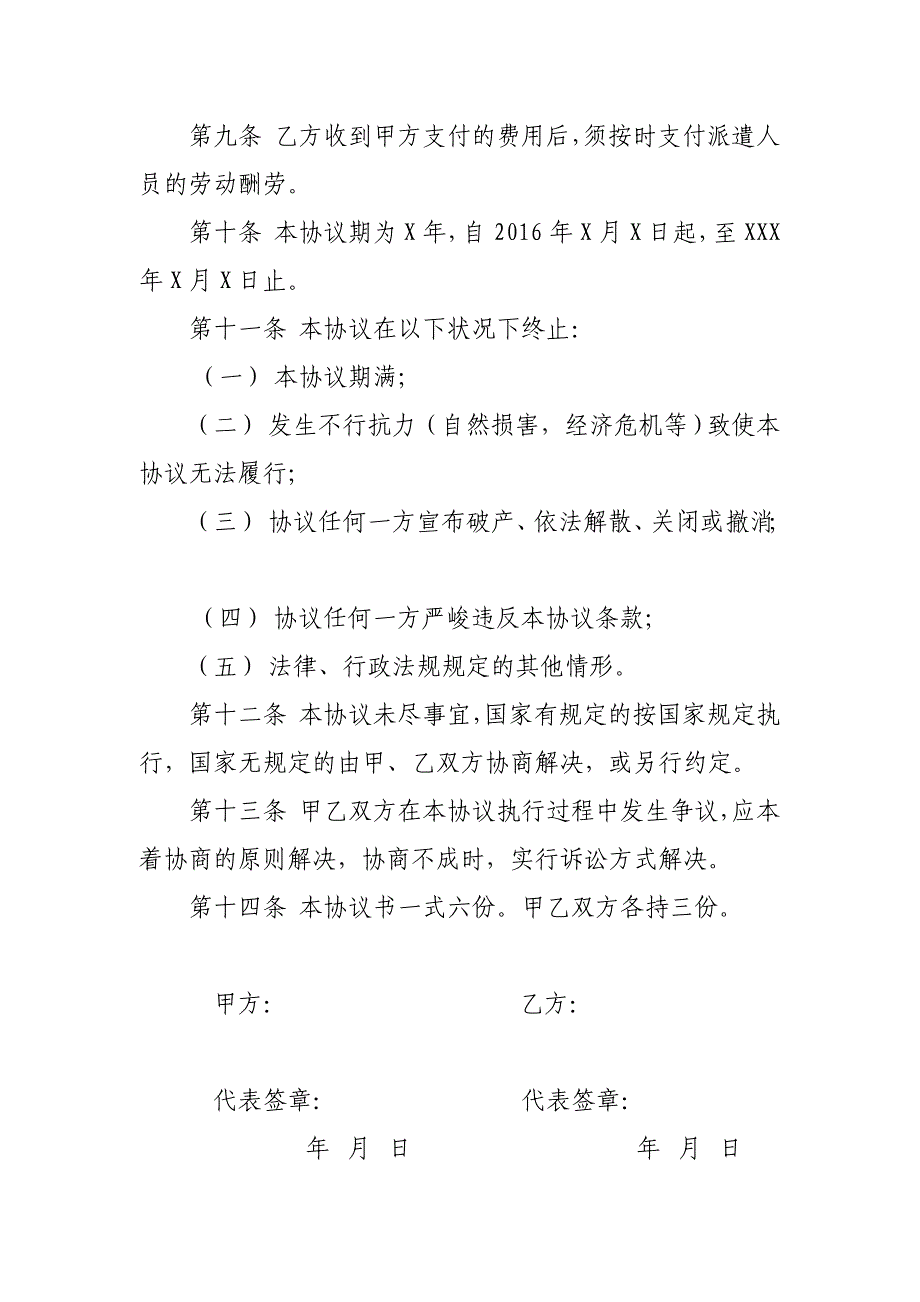 第九条 乙方收到甲方支付的费用后,须按时支付派遣人
员的劳动酬劳。
第十条 本协议期为X年,自2016年X月X日起,至XXX
年X月X日止。
第十一条 本协议在以下状况下终止:
（一）本协议期满;
（二）发生不行抗力(自然损害,经济危机等)致使本
协议无法履行;
（三）协议任何一方宣布破产、依法解散、关闭或撤消;
（四）协议任何一方严峻违反本协议条款;
（五）法律、行政法规规定的其他情形。
第十二条 本协议未尽事宜,国家有规定的按国家规定执
行,国家无规定的由甲、乙双方协商解决,或另行约定。
第十三条 甲乙双方在本协议执行过程中发生争议,应本
着协商的原则解决,协商不成时,实行诉讼方式解决。
第十四条 本协议书一式六份。甲乙双方各持三份。
甲方: 乙方:
代表签章: 代表签章:
年 月 日 年 月 日